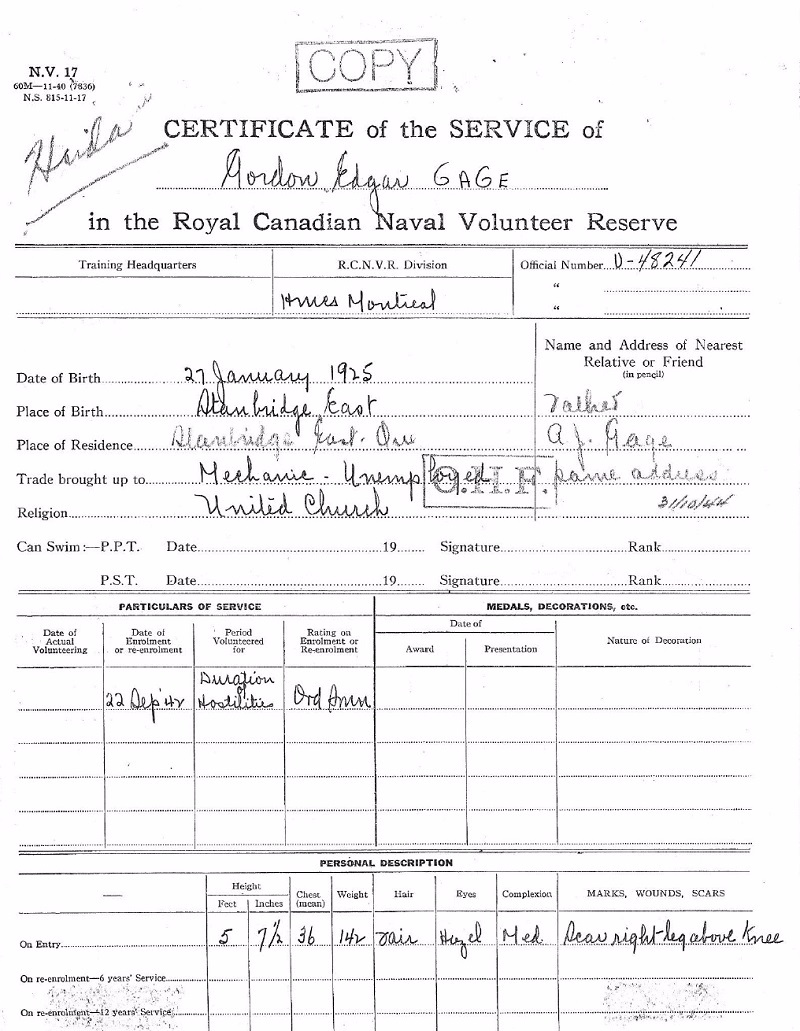 COPY
N.V. 17
60M—11-40 (7836)
N.S. 815-11-17
Haida
CERTIFICATE of the SERVICE of
Gordon Edgar GAGE
in the Royal Canadian Naval Volunteer Reserve
Training Headquarters R.C.N.V.R. Division Official Number V-48241
"
Hmcs Montreal
"
Name and Address of Nearest
Relative or Friend
(in pencil)
Date of Birth 27 January 1925
Place of Birth Stanbridge East Father
Place of Residence Stanbridge East. Que A J. Gage
Trade brought up to Mechanic - Unemployed same address
O.H.F.
Religion United Church 31/10/44
Can Swim:—P.P.T. Date 19 Signature Rank
P.S.T. Date 19 Signature Rank
PARTICULARS OF SERVICE MEDALS, DECORATIONS, etc.
Date of Actual Volunteering Date of Enrolment or re-enrolment Period Volunteered for Rating on Enrolment or Re-enrolment Date of Award Presentation Nature of Decoration
22 Sep '42 Duration of Hostilities Ord Smn
PERSONAL DESCRIPTION
— Height Feet Inches Chest (mean) Weight Hair Eyes Complexion MARKS, WOUNDS, SCARS
On Entry 5 7½ 36 142 Fair Hazel Med Scar right leg above Knee
On re-enrolment—6 years' Service
On re-enrolment—12 years' Service